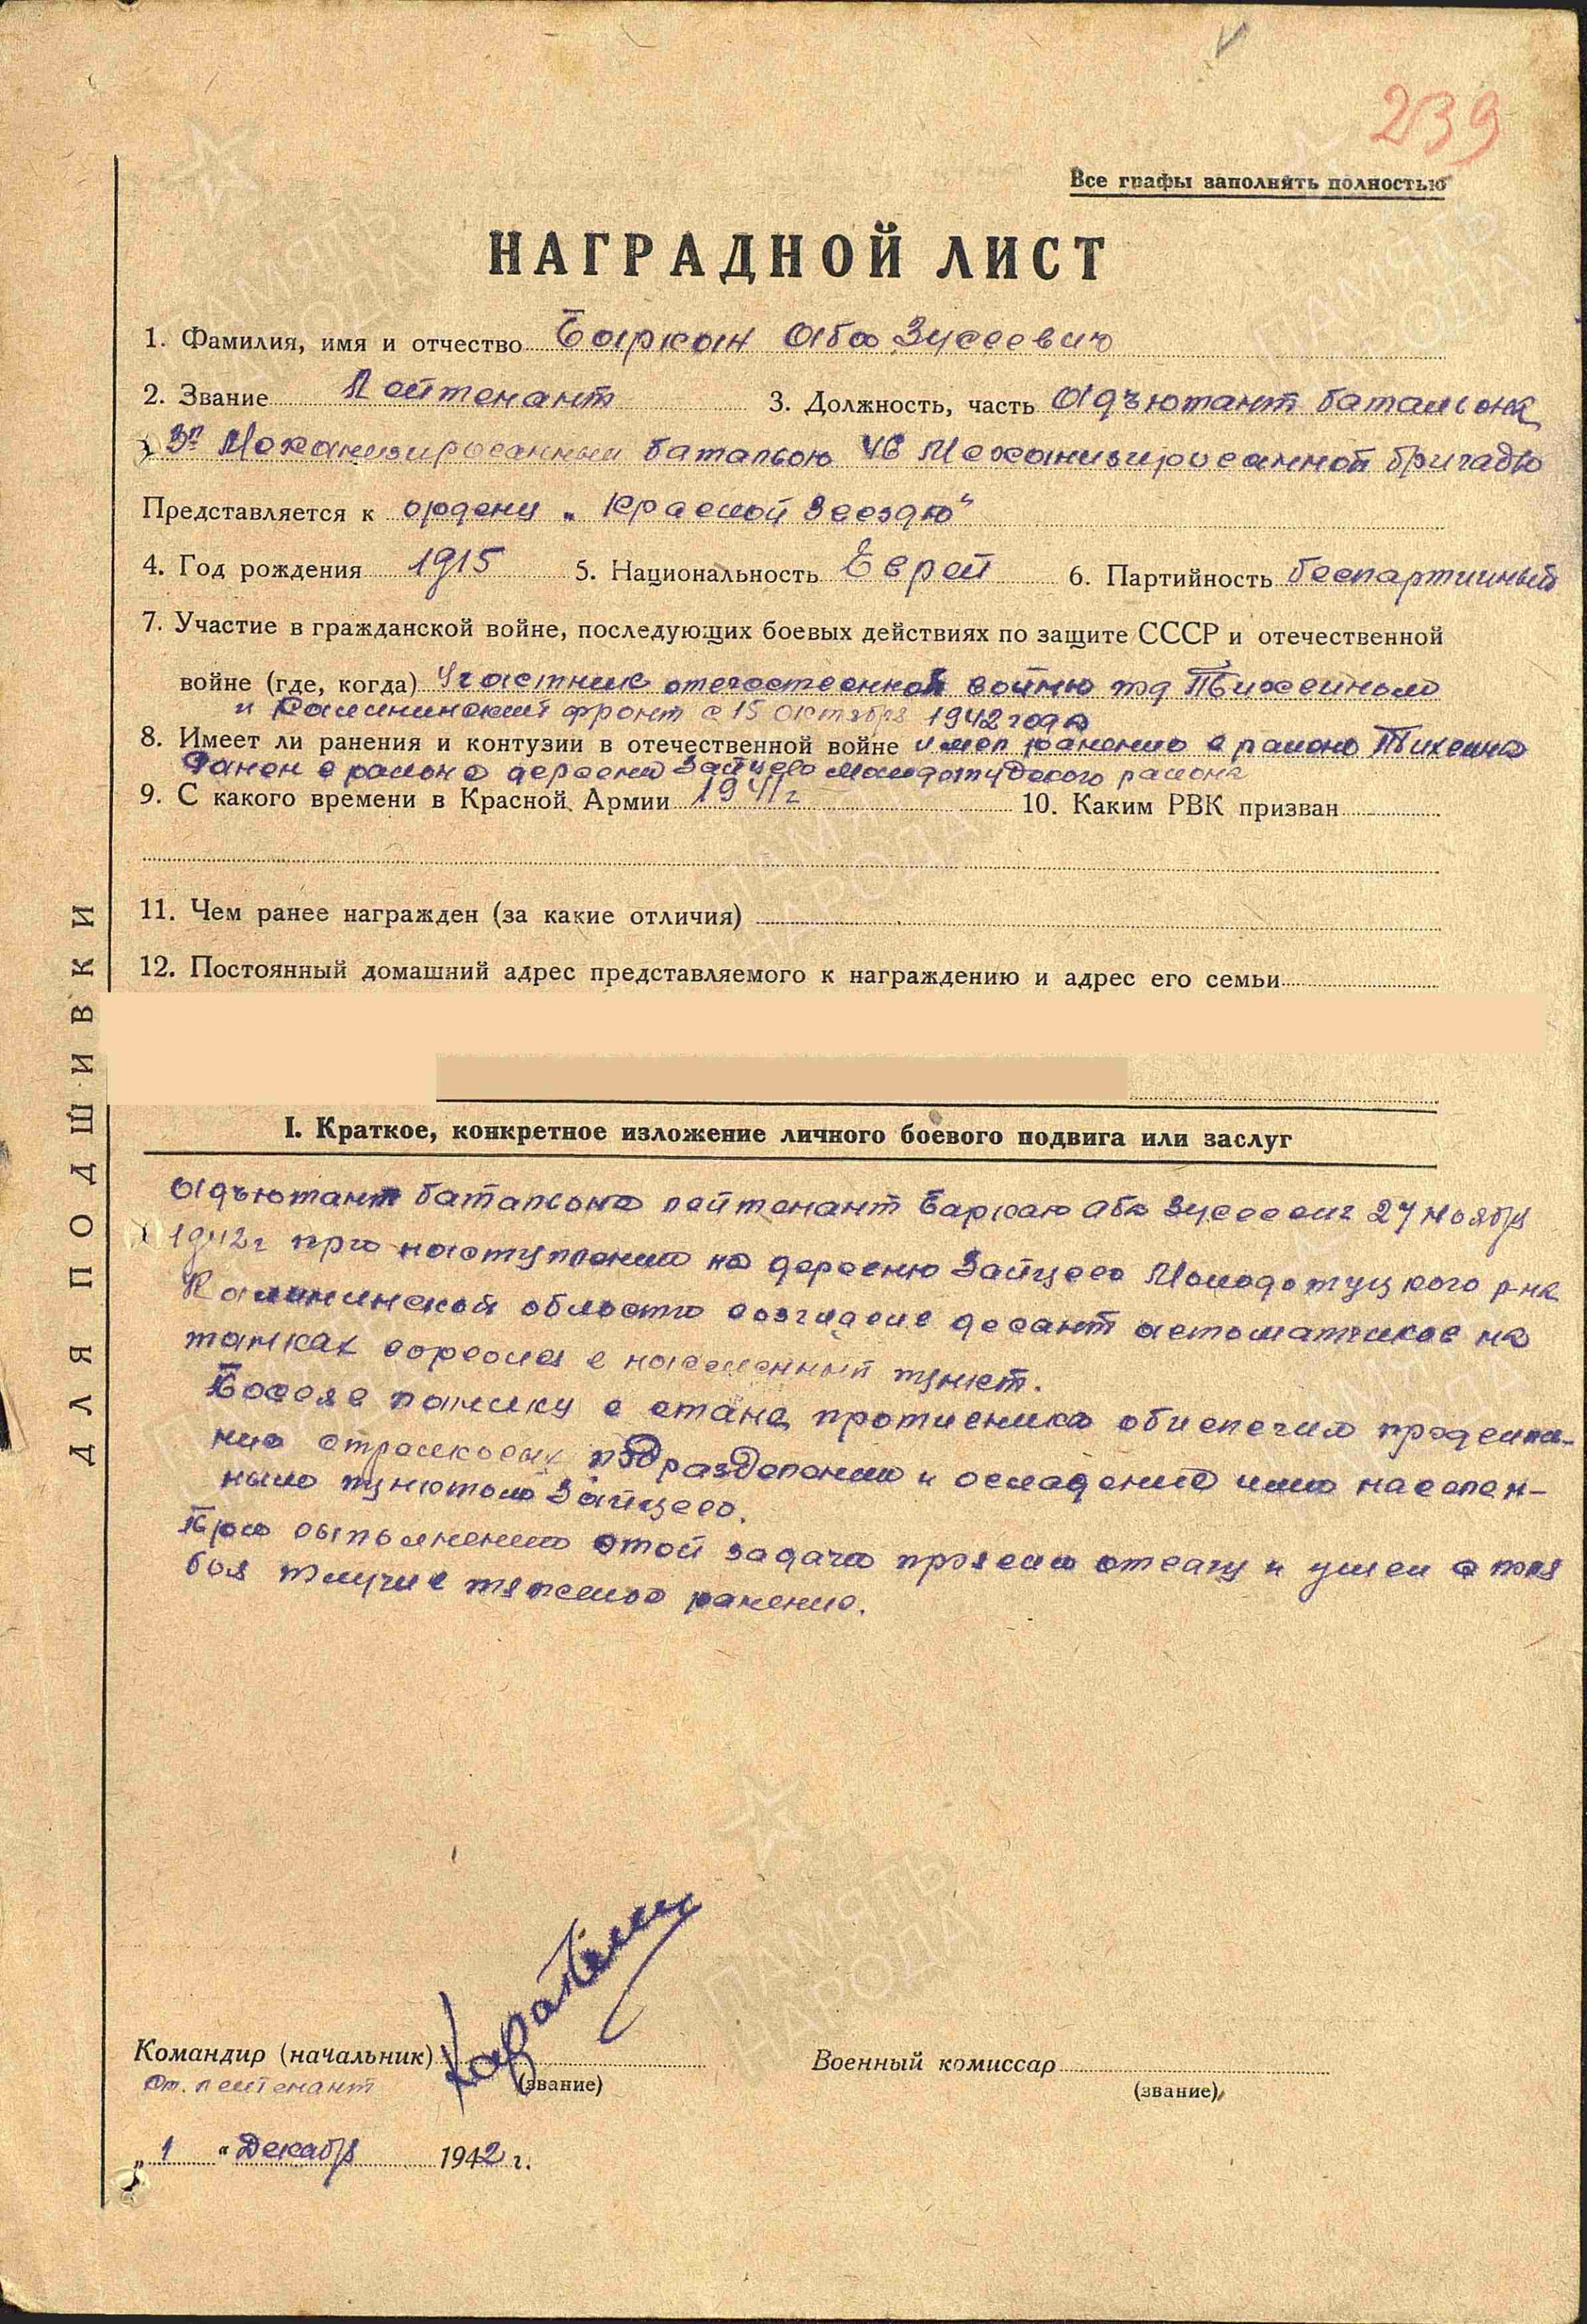 239
Все графы заполнять полностью
НАГРАДНОЙ ЛИСТ
1. Фамилия, имя и отчество Баркан Аба Зусеевич
2. Звание Лейтенант 3. Должность, часть Адъютант батальона
3й Механизированный батальон 46 Механизированной бригады
Представляется к ордену „Красной Звезды"
4. Год рождения 1915 5. Национальность Еврей 6. Партийность беспартийный
7. Участие в гражданской войне, последующих боевых действиях по защите СССР и отечественной
войне (где, когда) Участник отечественной войны под Тихвином
и Калининский фронт с 15 октября 1942 года
8. Имеет ли ранения и контузии в отечественной войне имел ранение в районе Тихвина
Ранен в районе деревни Зайцево Молодотудского района
9. С какого времени в Красной Армии 1941 г 10. Каким РВК призван
11. Чем ранее награжден (за какие отличия)
12. Постоянный домашний адрес представляемого к награждению и адрес его семьи
I. Краткое, конкретное изложение личного боевого подвига или заслуг
Адъютант батальона лейтенант Баркан Аба Зусеевич 27 ноября
1942 г при наступлении на деревню Зайцево Молодотуцкого р-на
Калининской области возглавив десант автоматчиков на
танках ворвался в населенный пункт.
Посеяв панику в стане противника обиспечил продвиже-
ние стрелковых подразделений и овладение ими населен-
ным пунктом Зайцево.
При выполнении этой задачи проявил отвагу и ушел с поля
боя получив тяжелое ранение.
Командир (начальник)
Ст. лейтенант (звание)
Военный комиссар
(звание)
„1" Декабря 1942 г.
ДЛЯ ПОДШИВКИ
ПАМЯТЬ НАРОДА